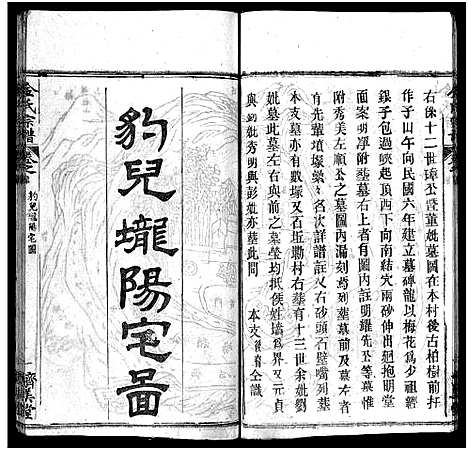 右係十二世璋公暨董妣墓圖在本村後古柏樹前扦
作子山午向民國六年建立墓碑龍以梅花為少祖經
銀子包過峽起頂西下向南結穴兩砂伸出迴抱明堂
面案明凈附塟墓右上者有圖內註明耀先公等墓惟
附秀美左順公之墓圖內漏刻蕚列墓墓前及墓
有先輩墳塚纍々名次詳譜註又右砂頭石壁嘴列塟
本支墓亦有數塚又石坵墈村右塟有十三世余妣劉
妣墓此墓左及墓前墓後均抵侯姓墻為界又元貞
與妣秀明與彭妣亦塟此間
本支後裔仝識
豹兒壠陽宅圖
金氏宗譜
卷之
豹兒壠陽宅圖
一
濟美堂